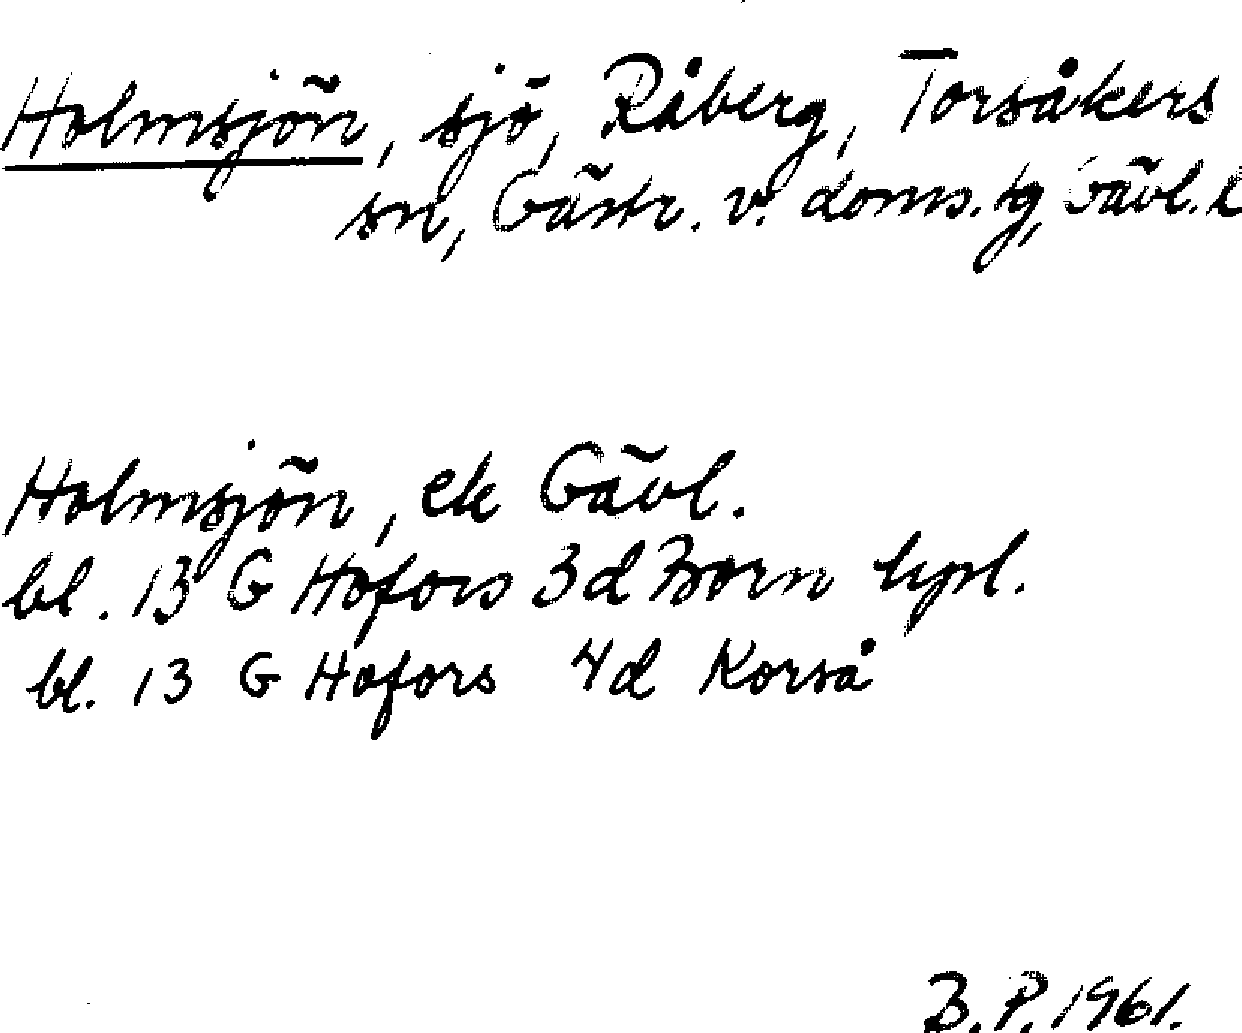 Holmsjön, sjö, Råberg, Torsåkers
sn, Gästr. v. doms. tg, Gävl. l
Holmsjön, ek Gävl.
bl. 13 G Hofors 3d Born kpl.
bl. 13 G Hofors 4d Korså
B.P. 1961.